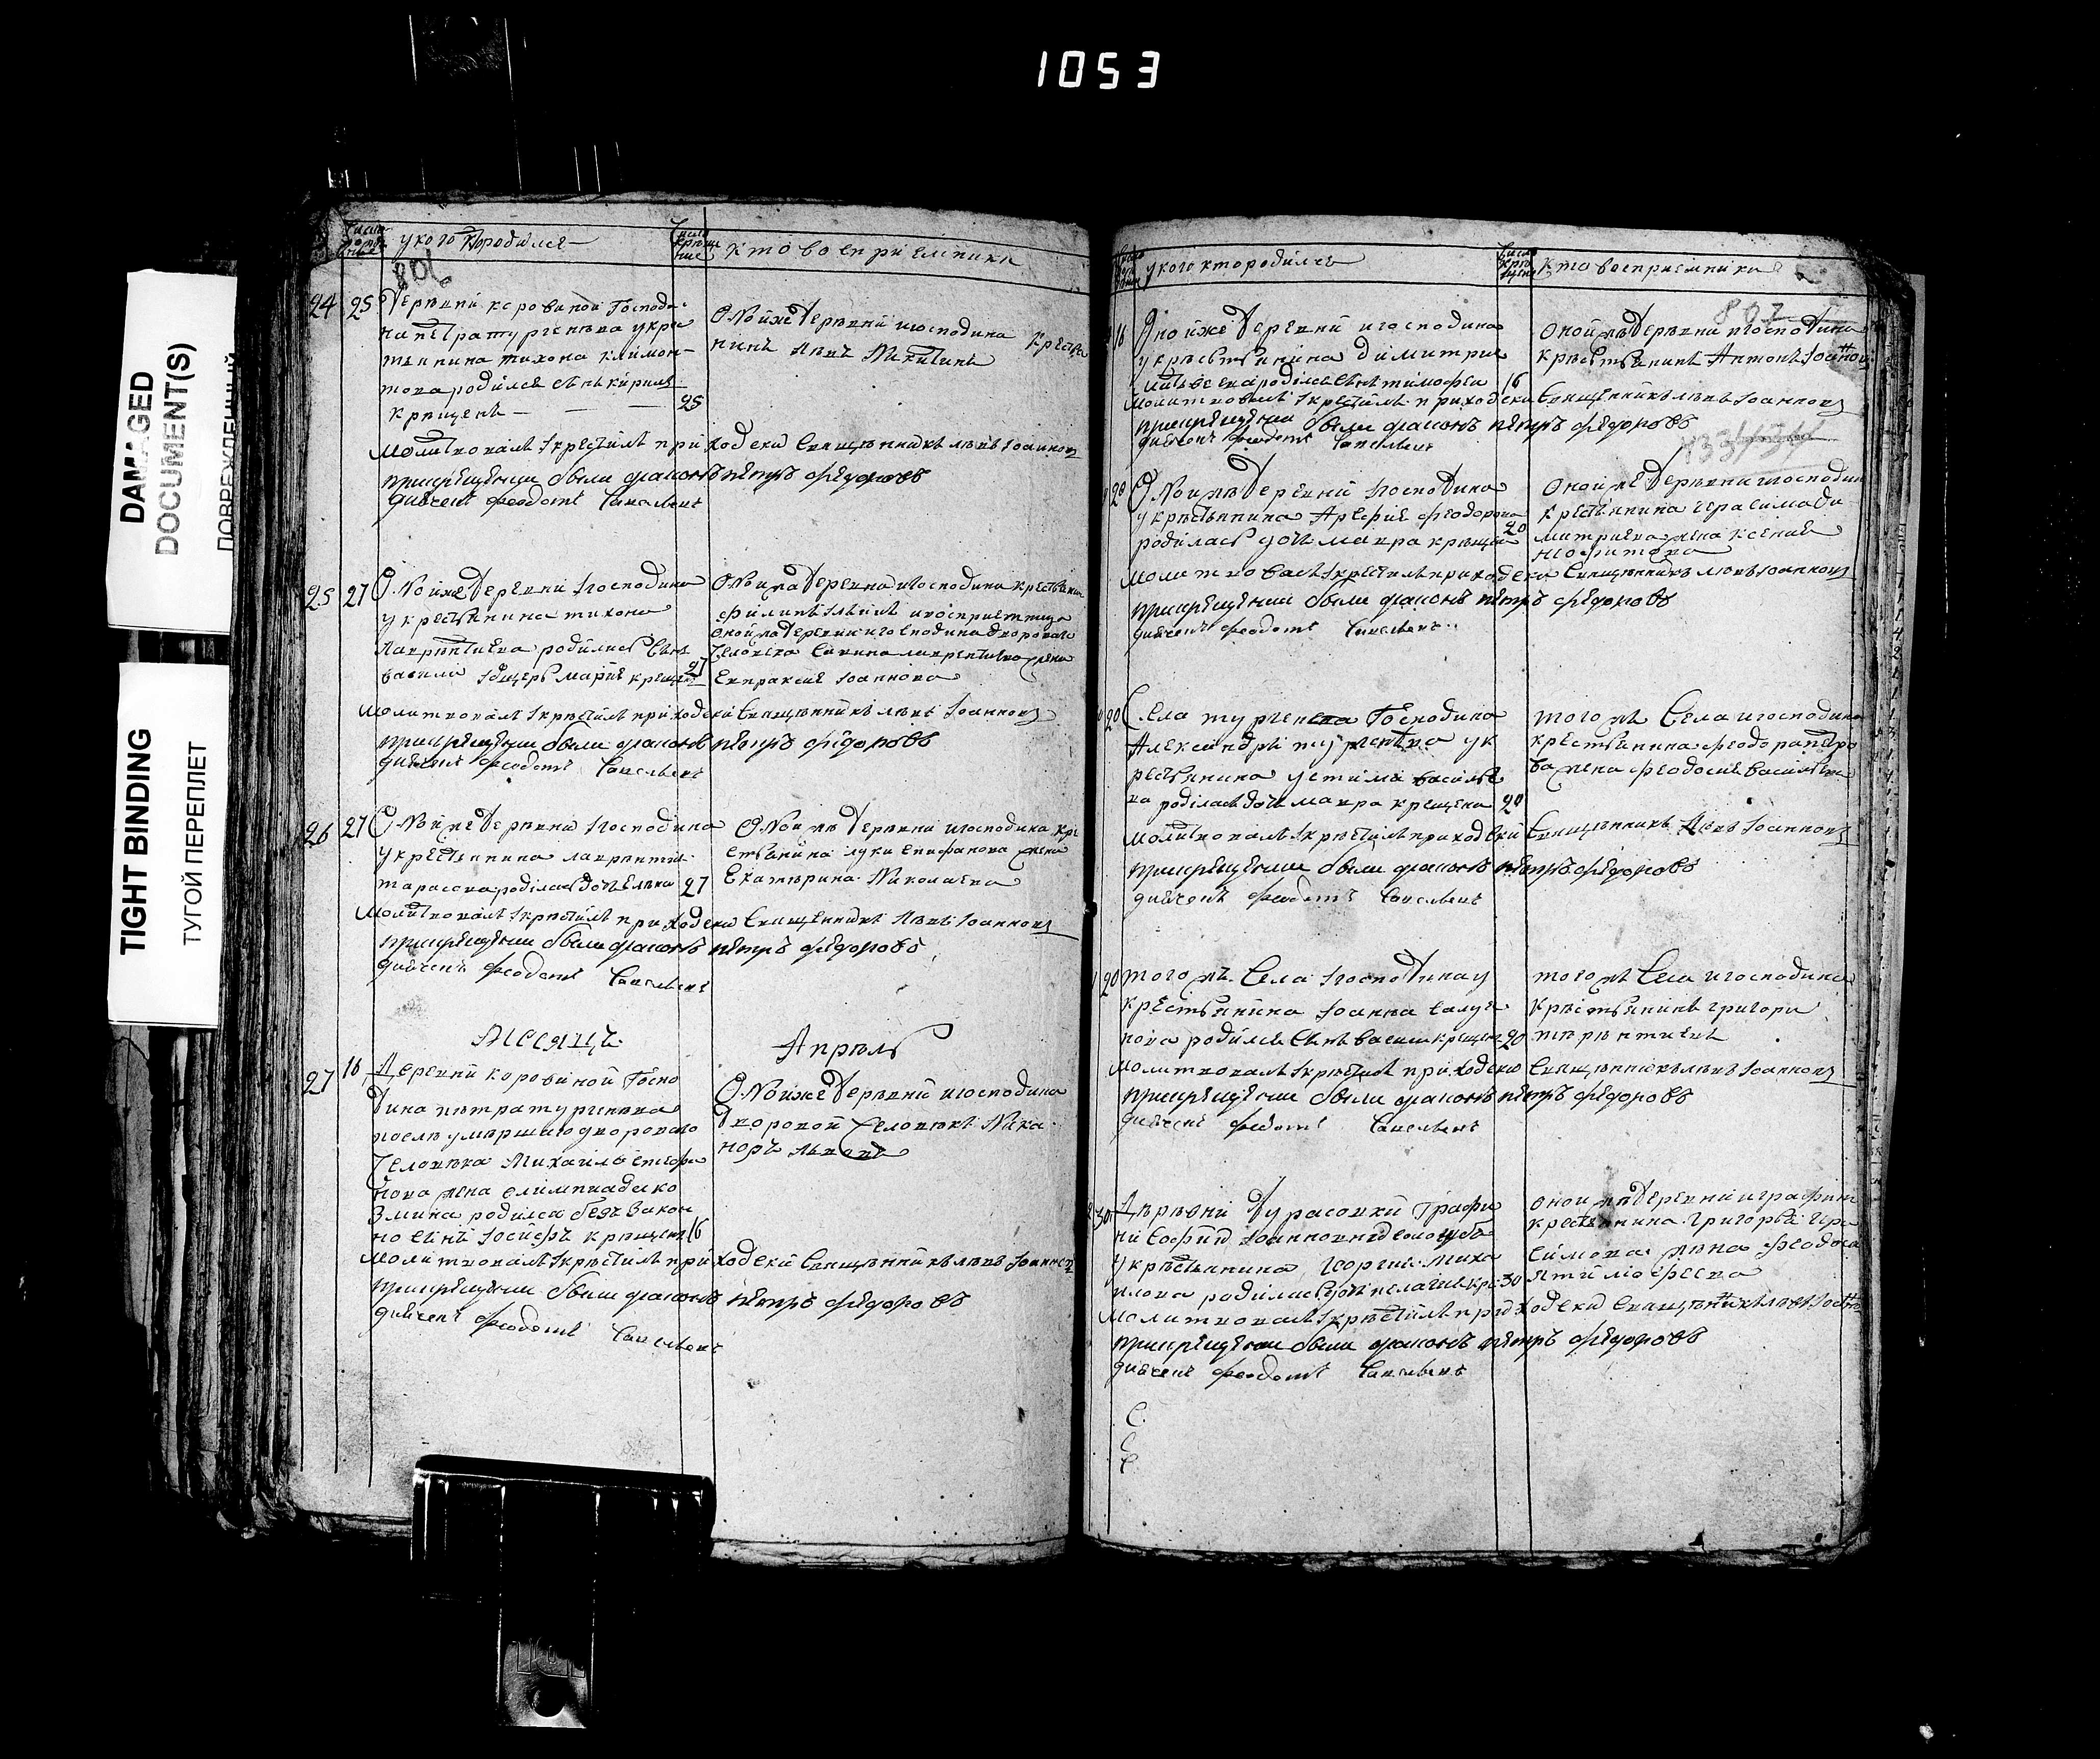 1053
DAMAGED
DOCUMENT(S)
ПОВРЕЖДЕННЫЙ
TIGHT BINDING
ТУГОЙ ПЕРЕПЛЕТ
у кого кто родился
кто восприемники
806
24 25 Деревни Коровиной Господи
на Петра Тургенева у кре
тьянина Тихона Климон
това родился сынъ Кирилъ
крещенъ 25
Оной же деревни и господина крестья
нинъ Левъ Никитинъ
молитвовалъ и крестилъ приходски священникъ левъ Iоанновъ
при крещении были диаконъ петръ федоровъ
дьячекъ феодотъ Савельевъ
25 27 Оной же деревни и господина
у крестьянина Тихона
Лаврентиева родились сынъ
василий и дщерь мария крещены 27
Оной же деревни и господина крестьянинъ
филипъ и восприемница
оной же деревни и господина дворового
человека Лаврентиева жена
Евпраксия Iоаннова
молитвовалъ и крестилъ приходски священникъ левъ Iоанновъ
при крещении были диаконъ петръ федоровъ
дьячекъ феодотъ Савельевъ
26 27 Оной же деревни и господина
у крестьянина лаврентия
тарасова родилась дочь Елена 27
Оной же деревни и господина кре
стьянина луки епифанова жена
Екатерина Николаева
молитвовалъ и крестилъ приходски священникъ левъ Iоанновъ
при крещении были диаконъ петръ федоровъ
дьячекъ феодотъ Савельевъ
Месяцъ Апрель
27 16 Деревни коровиной Госпо
дина петра тургенева
после умершаго дворового
человека Михаила стефа
нова жена олимпиада ко
змина родился без закон
но сынъ Iосифъ крещенъ 16
Оной же деревни и господина
дворовой человекъ Ника
норъ
молитвовалъ и крестилъ приходски священникъ левъ Iоанновъ
при крещении были диаконъ петръ федоровъ
дьячекъ феодотъ Савельевъ
у кого кто родился
кто восприемники
807
16 Оной же деревни и господина
у крестьянина димитрия
родился сынъ тимофей 16
оной же деревни и господина
крестьянинъ Антонъ Iоанновъ
молитвовалъ и крестилъ приходски священникъ левъ Iоанновъ
при крещении были диаконъ петръ федоровъ
дьячекъ феодотъ Савельевъ
20 Оной же деревни и господина
у крестьянина Арефия феодорова
родилась дочь мавра крещена 20
оной же деревни и господина
крестьянина герасима ди
митриева жена ксения
молитвовалъ и крестилъ приходски священникъ левъ Iоанновъ
при крещении были диаконъ петръ федоровъ
дьячекъ феодотъ Савельевъ
20 Села тургенева Господина
Александра тургенева у к
рестьянина устима василье
ва родилась дочь мавра крещена 20
того же села и господина
крестьянина феодора петро
ва жена феодосия васильева
молитвовалъ и крестилъ приходски священникъ Левъ Iоанновъ
при крещении были диаконъ петръ федоровъ
дьячекъ феодотъ Савельевъ
20 того же села и господина у
крестьянина Iоанна
родился сынъ василий крещенъ 20
того же села и господина
крестьянинъ григори
терентиевъ
молитвовалъ и крестилъ приходски священникъ левъ Iоанновъ
при крещении были диаконъ петръ федоровъ
дьячекъ феодотъ Савельевъ
30 Деревни Дурасовки Графи
ни Софии Iоанновны
у крестьянина Георгия Миха
илова родилась дочь пелагия кре 30
оной же деревни и графини
крестьянина Григория Гера
симова жена феодоси
я тимофеева
молитвовалъ и крестилъ приходски священникъ левъ
при крещении были диаконъ петръ федоровъ
дьячекъ феодотъ Савельевъ